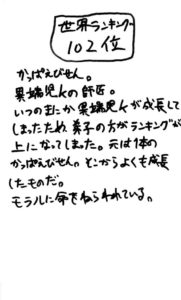 世界ランキング
102位
かっぱえびせん。
異端児Kの師匠。
いつのまにか異端児Kが成長して
しまったため、弟子の方がランキングが
上になってしまった。元は1体の
かっぱえびせん。そこからよくも成長
したものだ。
モラルに命をねらわれている。